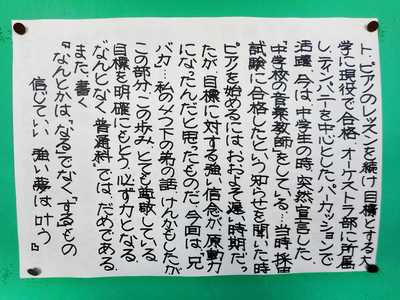 ト、ピアノのレッスンを続け目標とする大
学に現役で合格、オーケストラ部に所属
し、ティンパニーを中心としたパーカッションで
活躍、今は、中学生の時、突然宣言した、
「中学校の音楽教師」をしている…当時、採用
試験に合格したという知らせを聞いた時
ピアを始めるには、おおよそ遅い時期だっ
たが、目標に対する強い信念が、原動力
になったんだと思ったものだ、今回は、兄
バカ…私の4つ下の弟の話、けんかもしたが
この部分、この歩み、とても尊敬している
目標を明確にもとう、必ず力となる、
なんとなく、普通科では、だめである、
また、書く
『なんとかは、「なる」でなく「する」もの
信じていい、強い夢は、叶う』